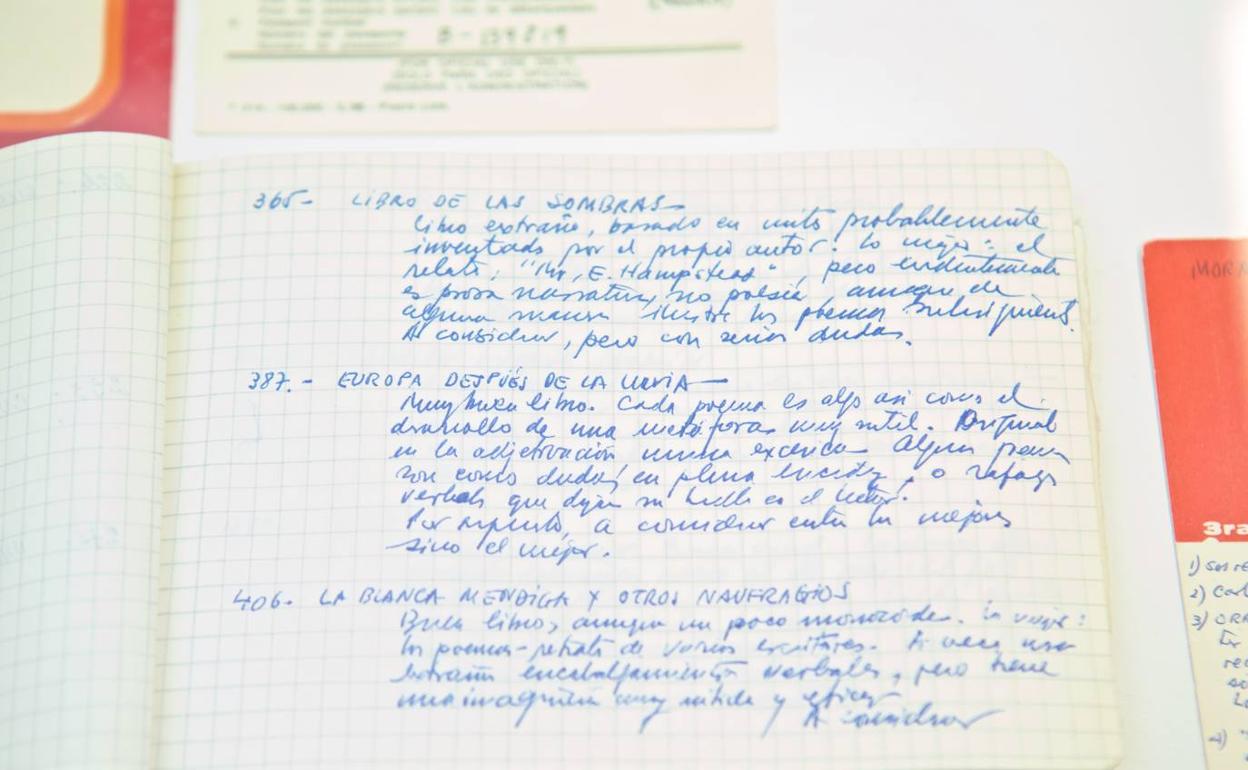 B-139819
365- LIBRO DE LAS SOMBRAS-
Libro extraño, basado en mitos probablemente
inventados por el propio autor. Lo mejor: el
relato: "Mr. E. Hampstead", pero evidentemente
es prosa narrativa, no poesía, aunque de
alguna manera ilustre los poemas subsiguient.
A considerar, pero con serias dudas.
387.- EUROPA DESPUÉS DE LA LLUVIA-
Muy buen libro. Cada poema es algo así como el
desarrollo de una metáfora muy sutil. Original
en la adjetivación nunca excesiva. Algunos poemas
son como dudas en plena lucidez, o ráfagas
verbales que dejan su huella en el lector.
Por supuesto, a considerar entre los mejores
sino el mejor.
406- LA BLANCA MENDIGA Y OTROS NAUFRAGIOS
Buen libro, aunque un poco monocorde. Lo mejor:
los poemas-retrato de varios escritores. A veces usa
extraños encabalgamientos verbales, pero tiene
una imaginería muy nítida y eficaz
A considerar
3ra
1)
2)
3)